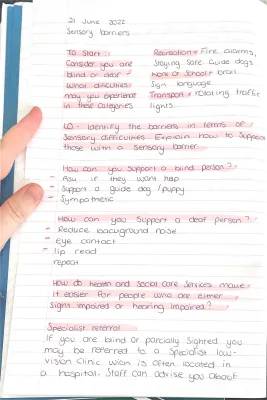 21 June 2022
Sensory barriers
To Start :
Consider you are
blind or deaf -
What difficulties
may you experience
in these categories
Recreation - Fire alarms,
Staying safe. Guide dogs
Work or School - brail.
Sign language.
Transport - rotating traffic
lights.
LO - Identify the barriers in terms of
Sensory difficulties. Explain how to Support
those with a sensory barrier.
How can you support a blind person?
- Ask if they want help
- Support a guide dog / puppy
- Sympathetic
How can you Support a deaf person?
- Reduce background noise
- Eye contact
- lip read
repeat
How do health and social care services make
it easier for people who are either
Signs impaired or hearing impaired?
Specialist referral
If you are blind or partially Sighted you
may be referred to a Specialist low-
vision Clinic wich is often located in
a hospital. Staff can advise you about